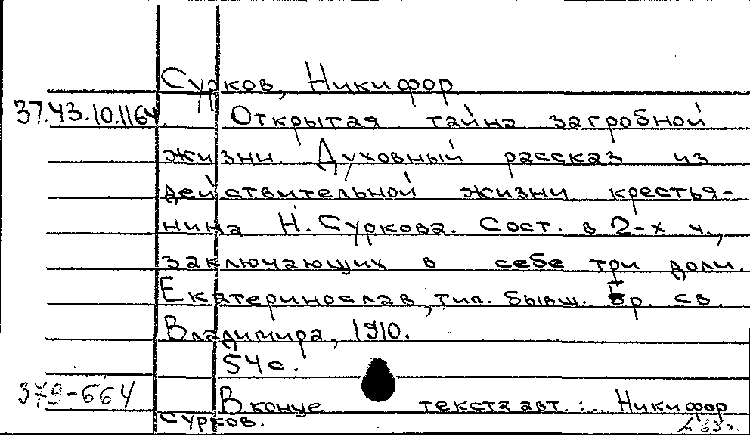 Сурков, Никифор
37.43.10.1164. Открытая тайна загробной
жизни. Духовный рассказ из
действительной жизни крестья-
нина Н. Суркова. Сост. в 2-х ч.,
заключающих в себе три доли.
Екатеринослав, тип. бывш. бр. св.
Владимира, 1910.
54 с.
379-664
В конце текста авт.: Никифор
Сурков.